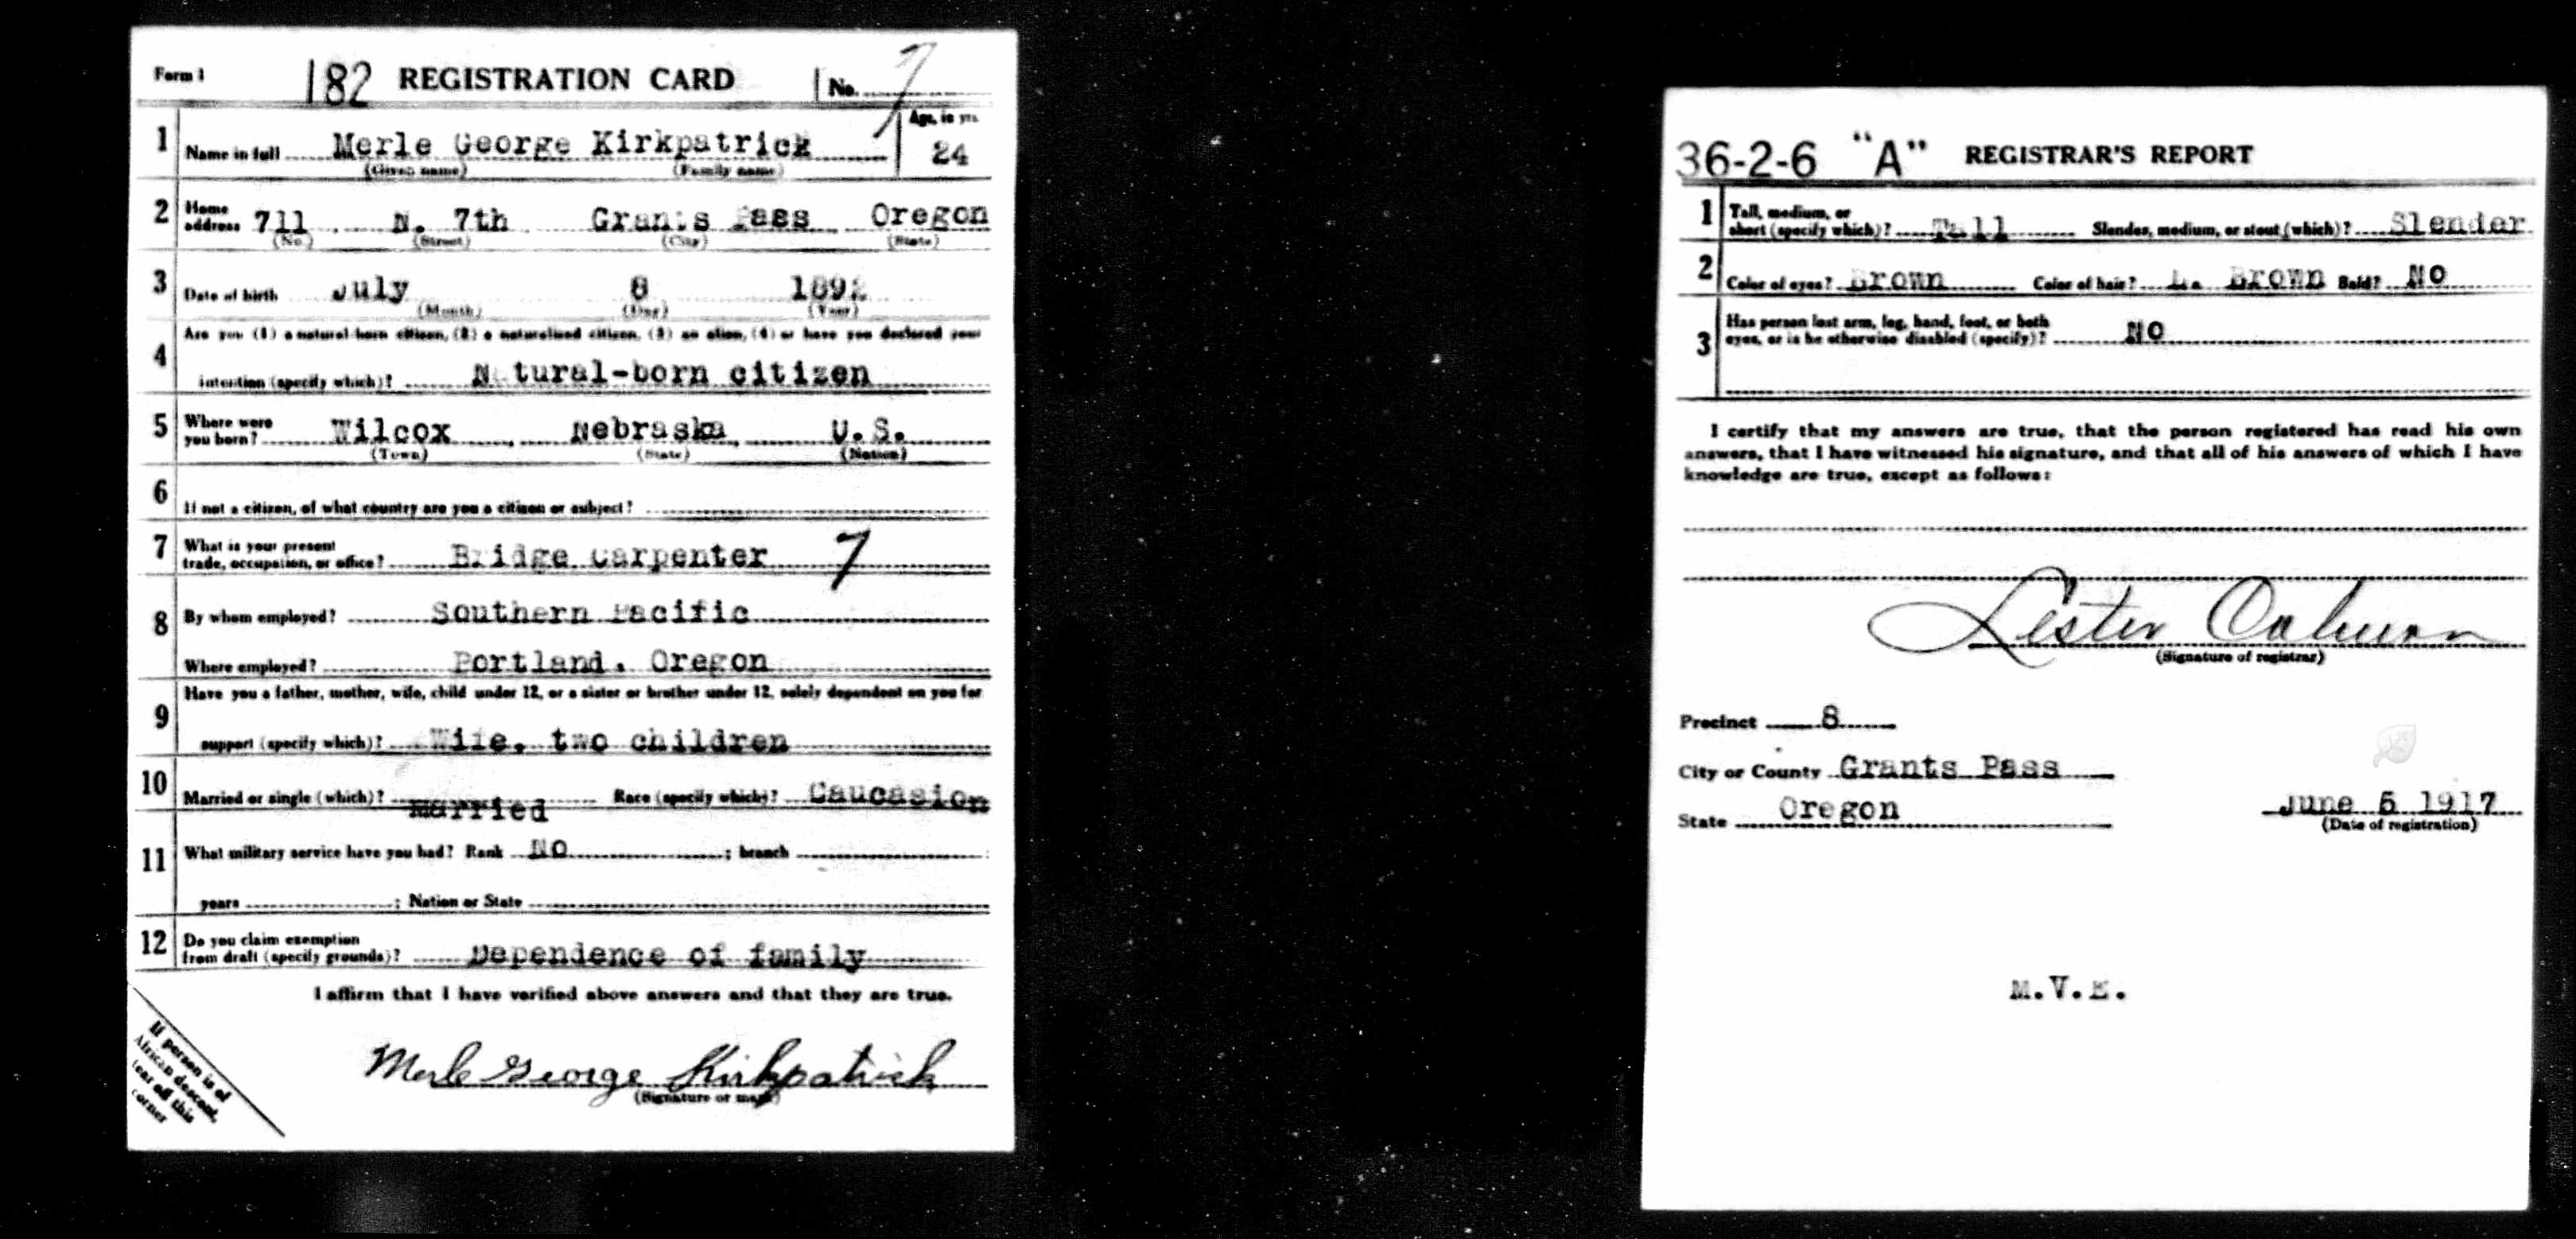 Form 1 182 REGISTRATION CARD No. 7
1 Name in full Merle George Kirkpatrick Age, in yrs. 24
(Given name) (Family name)
2 Home address 711 N. 7th Grants Pass Oregon
(No.) (Street) (City) (State)
3 Date of birth July 8 1892
(Month) (Day) (Year)
4 Are you (1) a natural-born citizen, (2) a naturalized citizen, (3) an alien, (4) or have you declared your
intention (specify which)? Natural-born citizen
5 Where were you born? Wilcox, Nebraska, U.S.
(Town) (State) (Nation)
6 If not a citizen, of what country are you a citizen or subject?
7 What is your present trade, occupation, or office? Bridge Carpenter 7
8 By whom employed? Southern Pacific
Where employed? Portland, Oregon
9 Have you a father, mother, wife, child under 12, or a sister or brother under 12, solely dependent on you for
support (specify which)? Wife, two children
10 Married or single (which)? Married Race (specify which)? Caucasion
11 What military service have you had? Rank No ; branch
years ; Nation or State
12 Do you claim exemption from draft (specify grounds)? Dependence of family
I affirm that I have verified above answers and that they are true.
Merle George Kirkpatrick
(Signature or mark)
If person is of
African descent,
tear off this
corner
36-2-6 "A" REGISTRAR'S REPORT
1 Tall, medium, or short (specify which)? Tall Slender, medium, or stout (which)? Slender
2 Color of eyes? Brown Color of hair? L. Brown Bald? No
3 Has person lost arm, leg, hand, foot, or both
eyes, or is he otherwise disabled (specify)? No
I certify that my answers are true, that the person registered has read his own
answers, that I have witnessed his signature, and that all of his answers of which I have
knowledge are true, except as follows:
Lester
(Signature of registrar)
Precinct 8
City or County Grants Pass
State Oregon
June 5 1917
(Date of registration)
M.V.E.